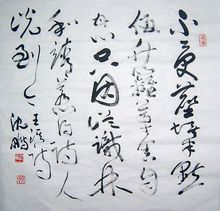 不受塵埃半點
侵竹籬茅舍自甘
心只因誤識林
和靖惹得詩人
說到今
王淇詩
沈鵬